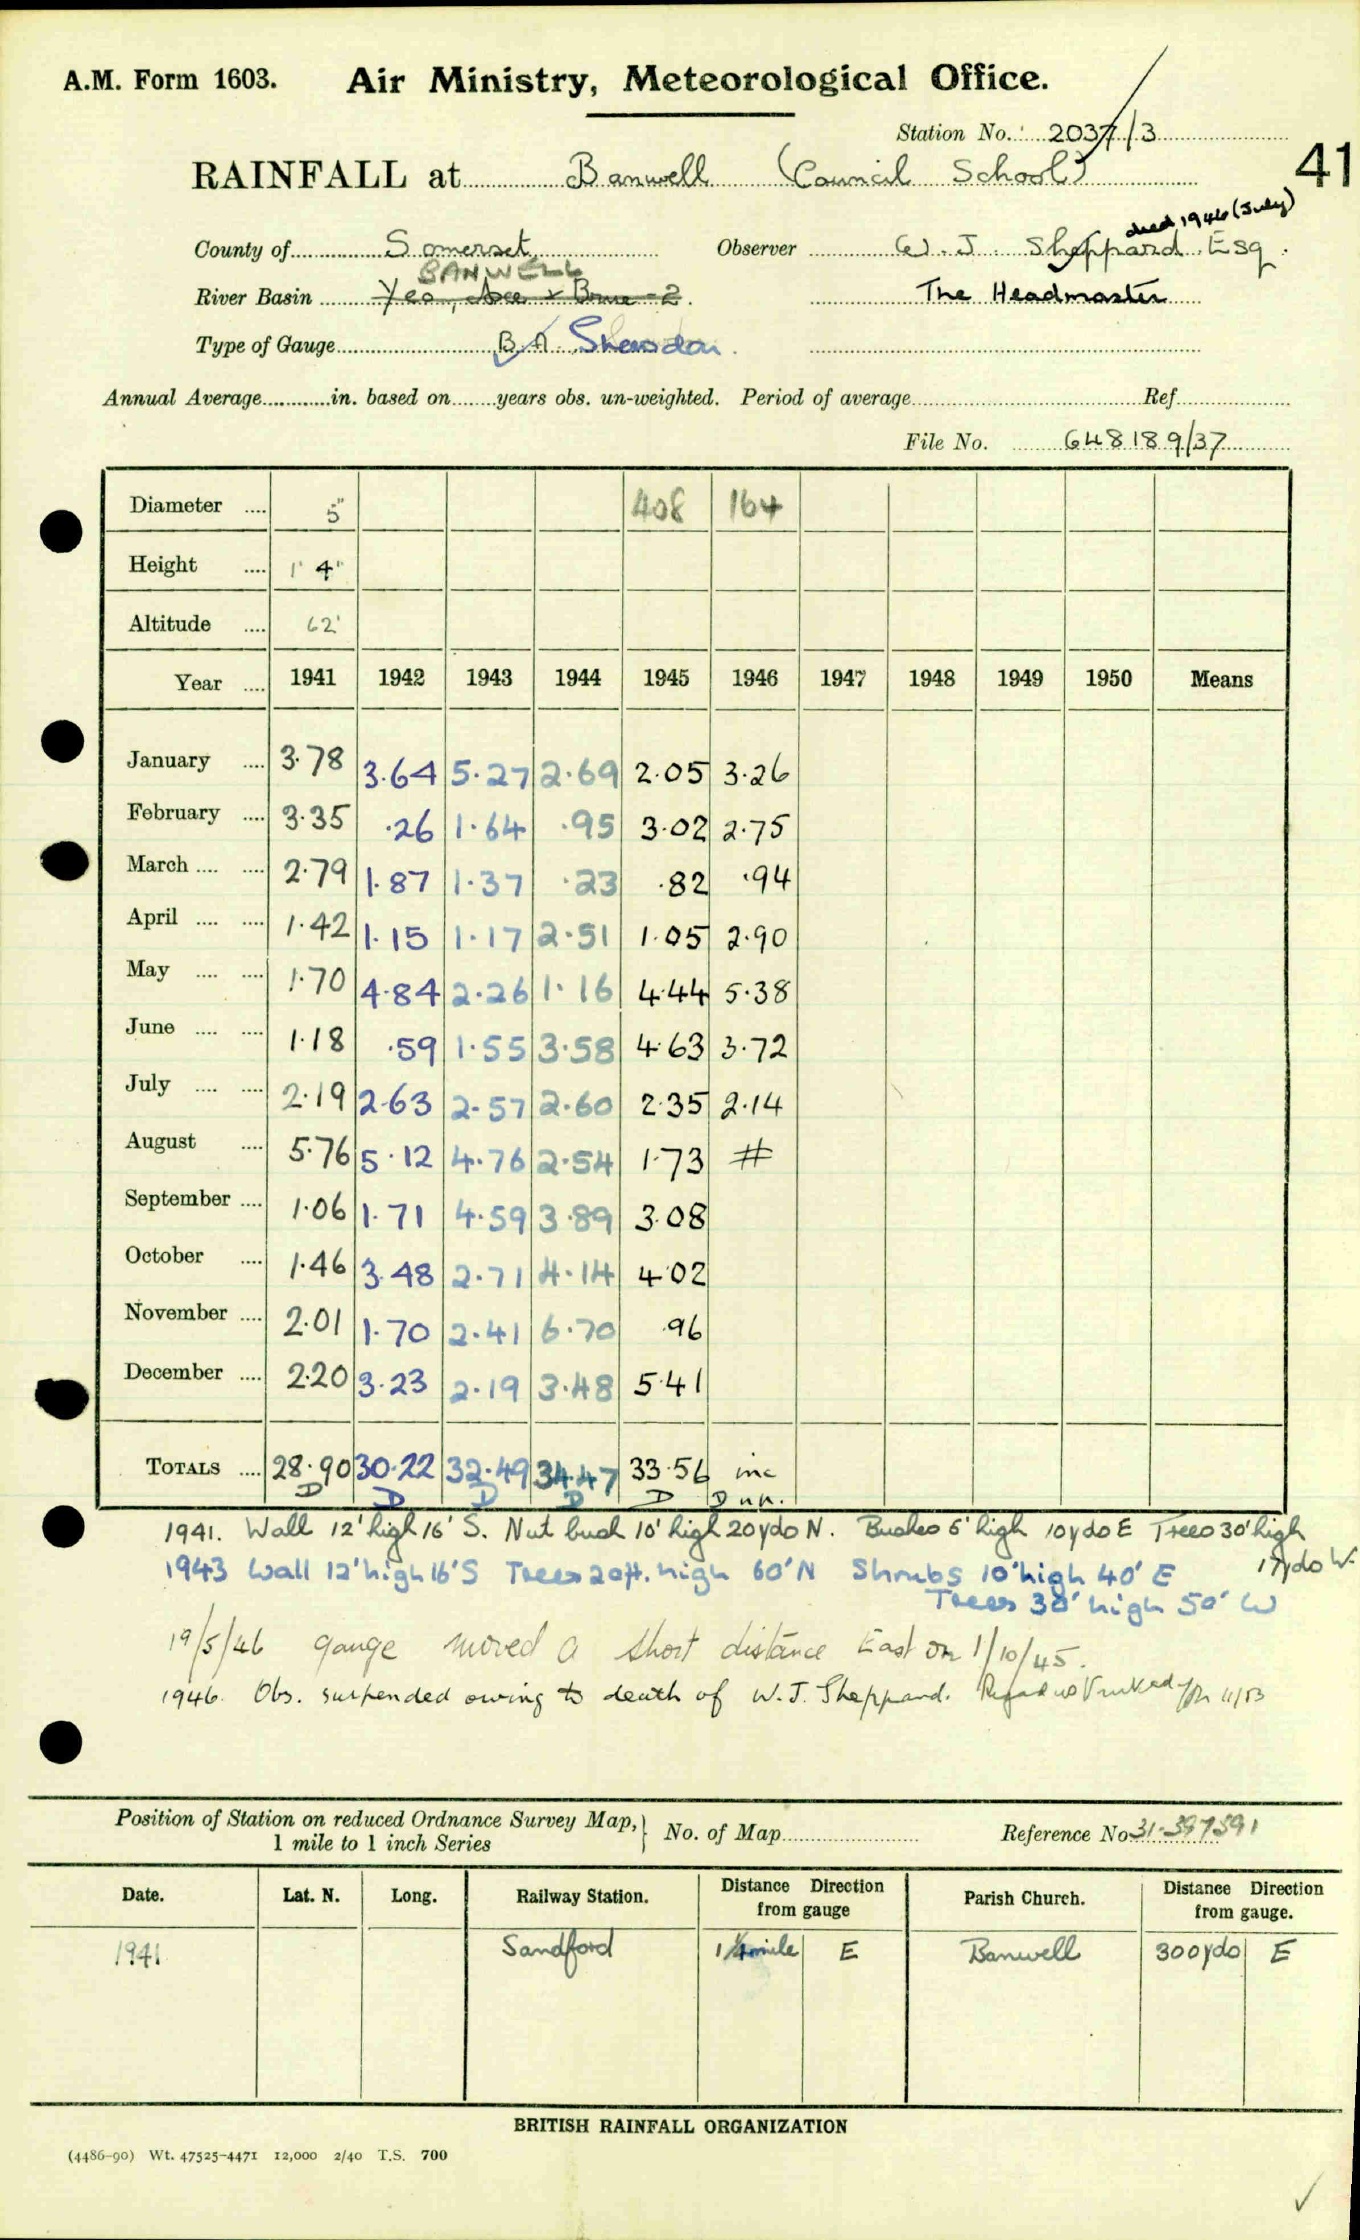 A.M. Form 1603. Air Ministry, Meteorological Office.
Station No. 2037/3
41
RAINFALL at Banwell (Council School)
died 1946 (July)
County of Somerset Observer W. J. Sheppard Esq.
BANWELL
River Basin Yeo, Axe & Brue - 2. The Headmaster
Type of Gauge B.A. Snowdon.
Annual Average in. based on years obs. un-weighted. Period of average Ref
File No. 648189/37
Diameter .... 5" 408 164
Height .... 1' 4"
Altitude .... 62'
Year .... 1941 1942 1943 1944 1945 1946 1947 1948 1949 1950 Means
January .... 3.78 3.64 5.27 2.69 2.05 3.26
February .... 3.35 .26 1.64 .95 3.02 2.75
March .... .... 2.79 1.87 1.37 .23 .82 .94
April .... .... 1.42 1.15 1.17 2.51 1.05 2.90
May .... .... 1.70 4.84 2.26 1.16 4.44 5.38
June .... .... 1.18 .59 1.55 3.58 4.63 3.72
July .... .... 2.19 2.63 2.57 2.60 2.35 2.14
August .... 5.76 5.12 4.76 2.54 1.73 #
September .... 1.06 1.71 4.59 3.89 3.08
October .... 1.46 3.48 2.71 4.14 4.02
November .... 2.01 1.70 2.41 6.70 .96
December .... 2.20 3.23 2.19 3.48 5.41
TOTALS .... 28.90 30.22 32.49 34.47 33.56 inc
D D D D D D n.n.
1941. Wall 12' high 16' S. Nut bush 10' high 20 yds N. Bushes 6' high 10 yds E Trees 30' high
17 yds W.
1943 Wall 12' high 16' S Trees 20 ft. high 60' N Shrubs 10' high 40' E
Trees 30' high 50' W
19/5/46 gauge moved a short distance East on 1/10/45.
1946. Obs. suspended owing to death of W. J. Sheppard. 11/53
Position of Station on reduced Ordnance Survey Map,
1 mile to 1 inch Series
No. of Map Reference No 31.397591
Date. Lat. N. Long. Railway Station. Distance Direction from gauge Parish Church. Distance Direction from gauge.
1941 Sandford 1 1/4 mile E Banwell 300 yds E
BRITISH RAINFALL ORGANIZATION
(4486-90) Wt. 47525-4471 12,000 2/40 T.S. 700